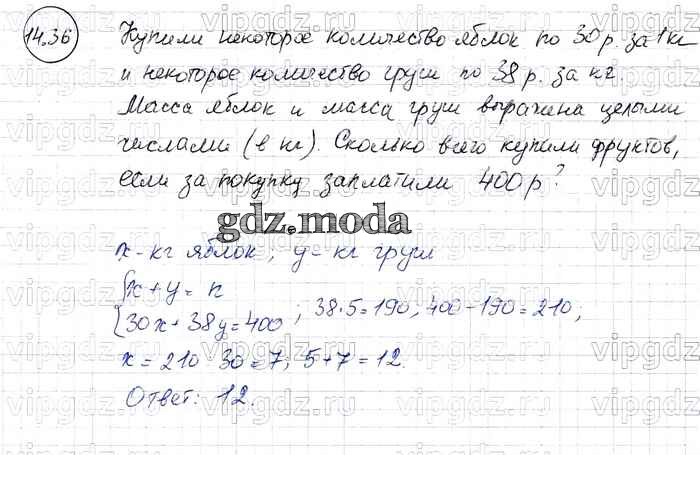 14.36
Купили некоторое количество яблок по 30 р. за 1 кг
и некоторое количество груш по 38 р. за кг.
Масса яблок и масса груш выражена целыми
числами (в кг). Сколько всего купили фруктов,
если за покупку заплатили 400 р?
gdz.moda
x - кг яблок; y - кг груш
{x + y = n
{30x + 38y = 400; 38·5 = 190, 400 - 190 = 210;
x = 210 30 = 7; 5 + 7 = 12.
Ответ: 12.
vipgdz.ru